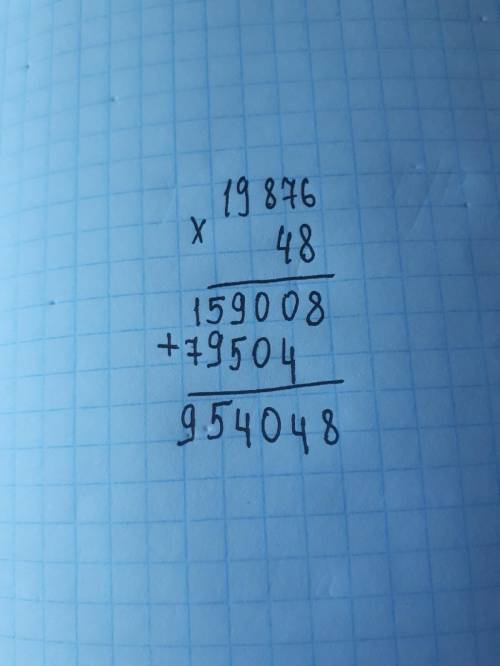 19876
x 48
159008
+79504
954048